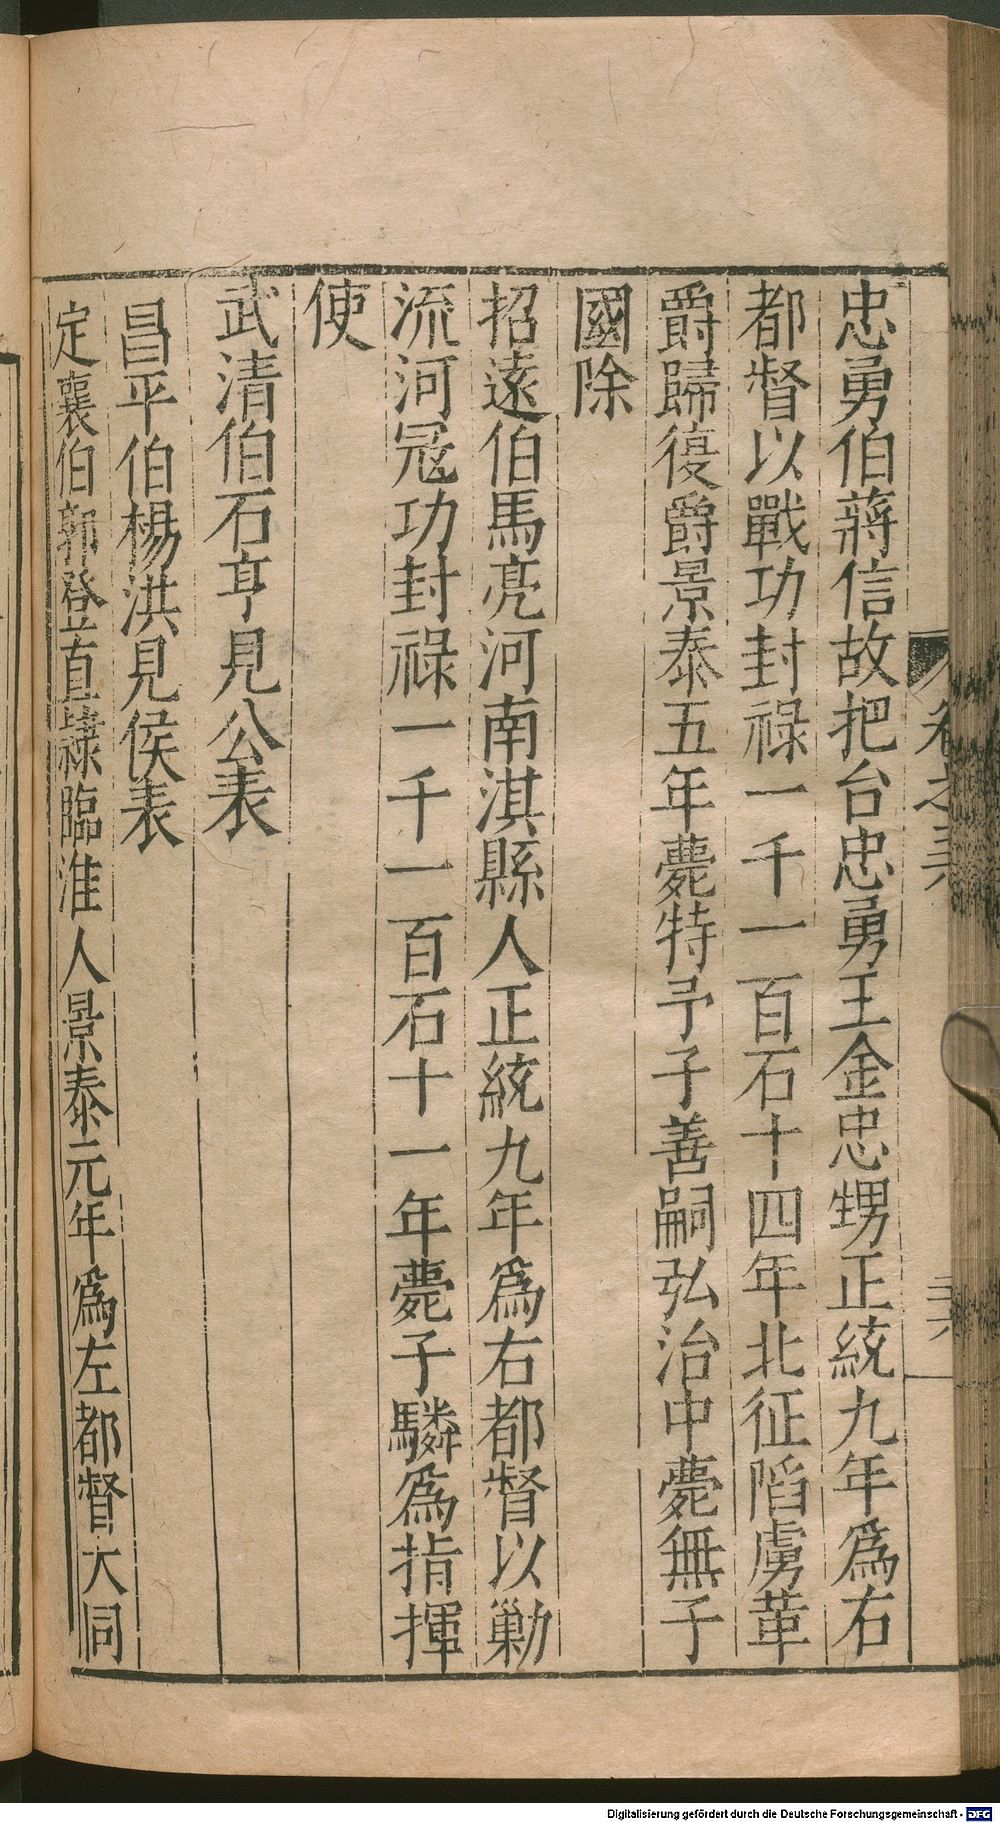 忠勇伯蔣信故把台忠勇王金忠甥正統九年爲右
都督以戰功封祿一千一百石十四年北征陷虜革
爵歸復爵景泰五年薨特予子善嗣弘治中薨無子
國除
招遠伯馬亮河南淇縣人正統九年爲右都督以勦
流河冦功封祿一千一百石十一年薨子驎爲指揮
使
武清伯石亨見公表
昌平伯楊洪見侯表
定襄伯郭登直隸臨淮人景泰元年爲左都督大同
Digitalisierung gefördert durch die Deutsche Forschungsgemeinschaft - DFG